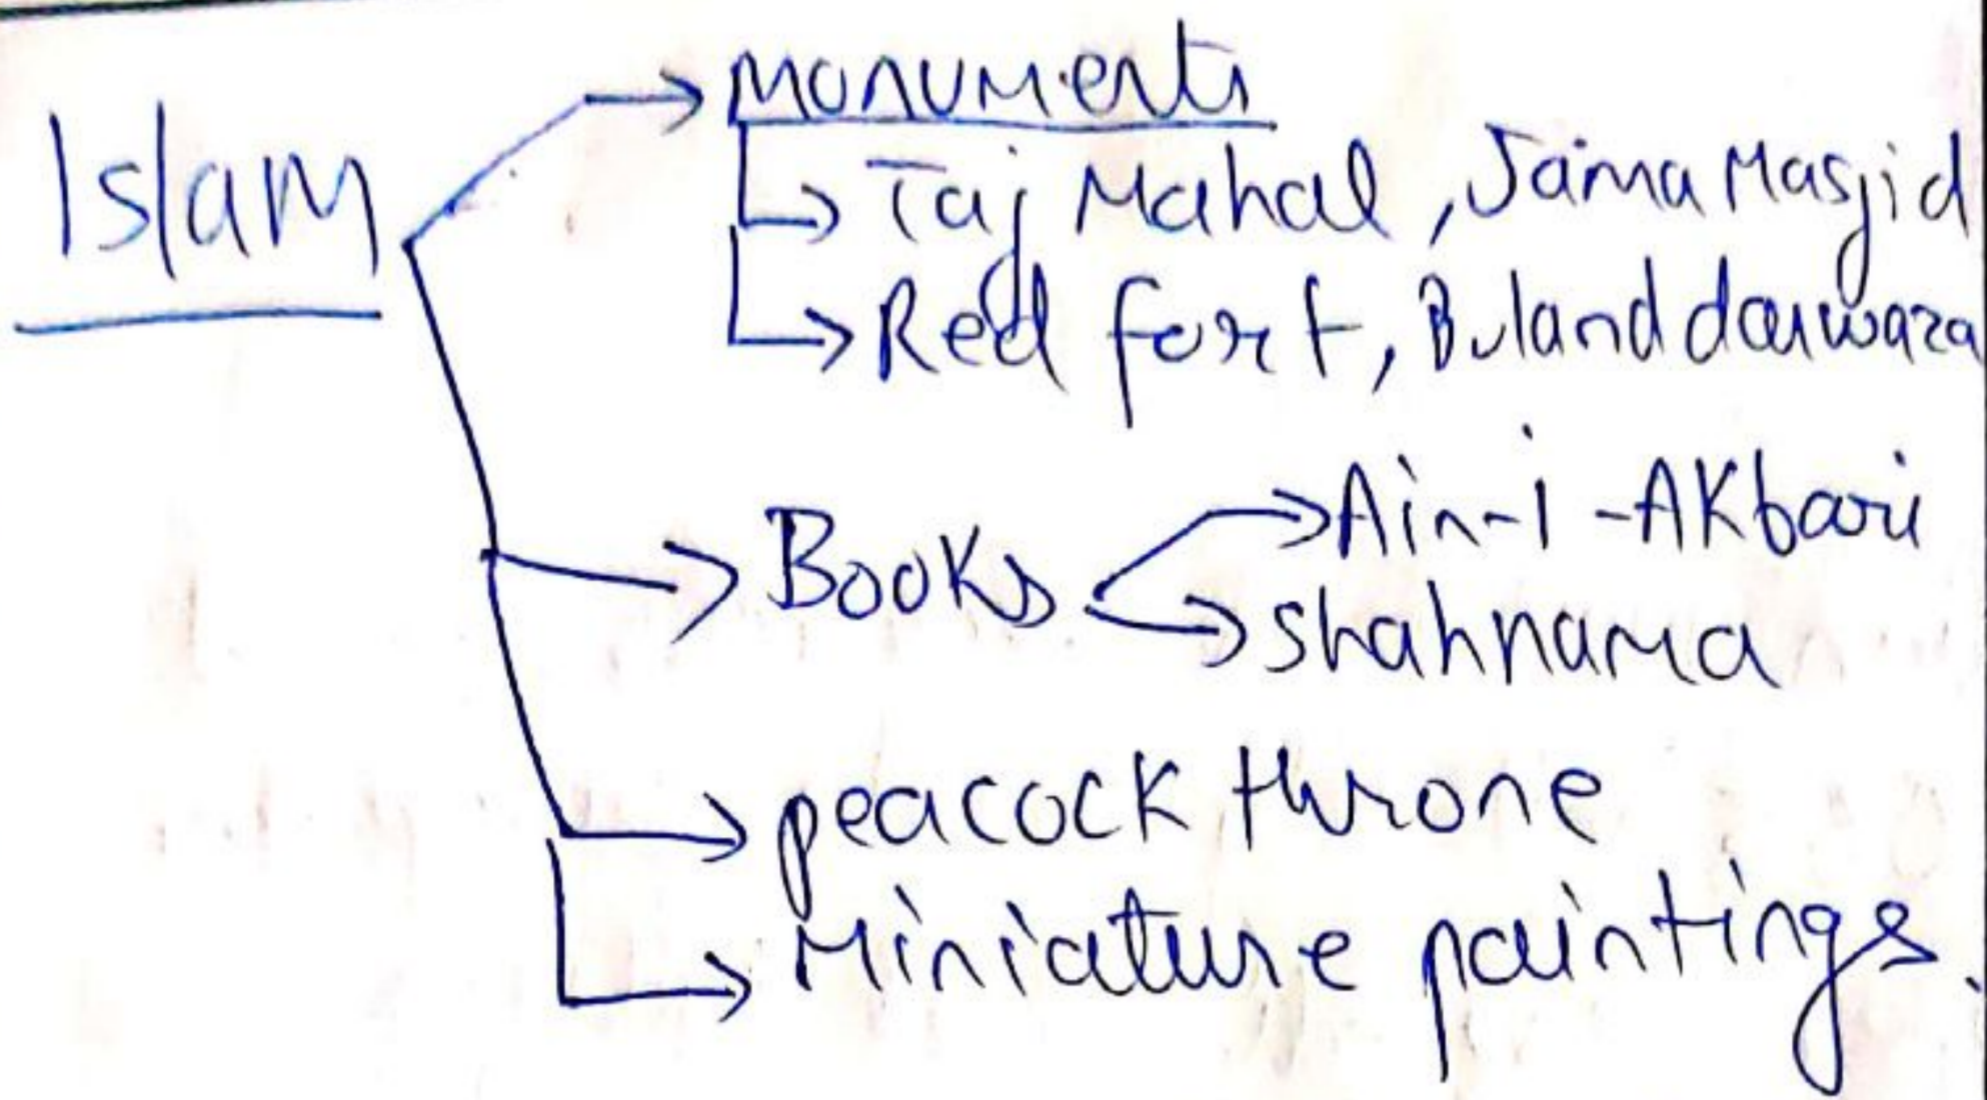 Islam
Monuments
Taj Mahal, Jama Masjid
Red fort, Buland darwaza
Books
Ain-i-Akbari
Shahnama
peacock throne
Miniature paintings.